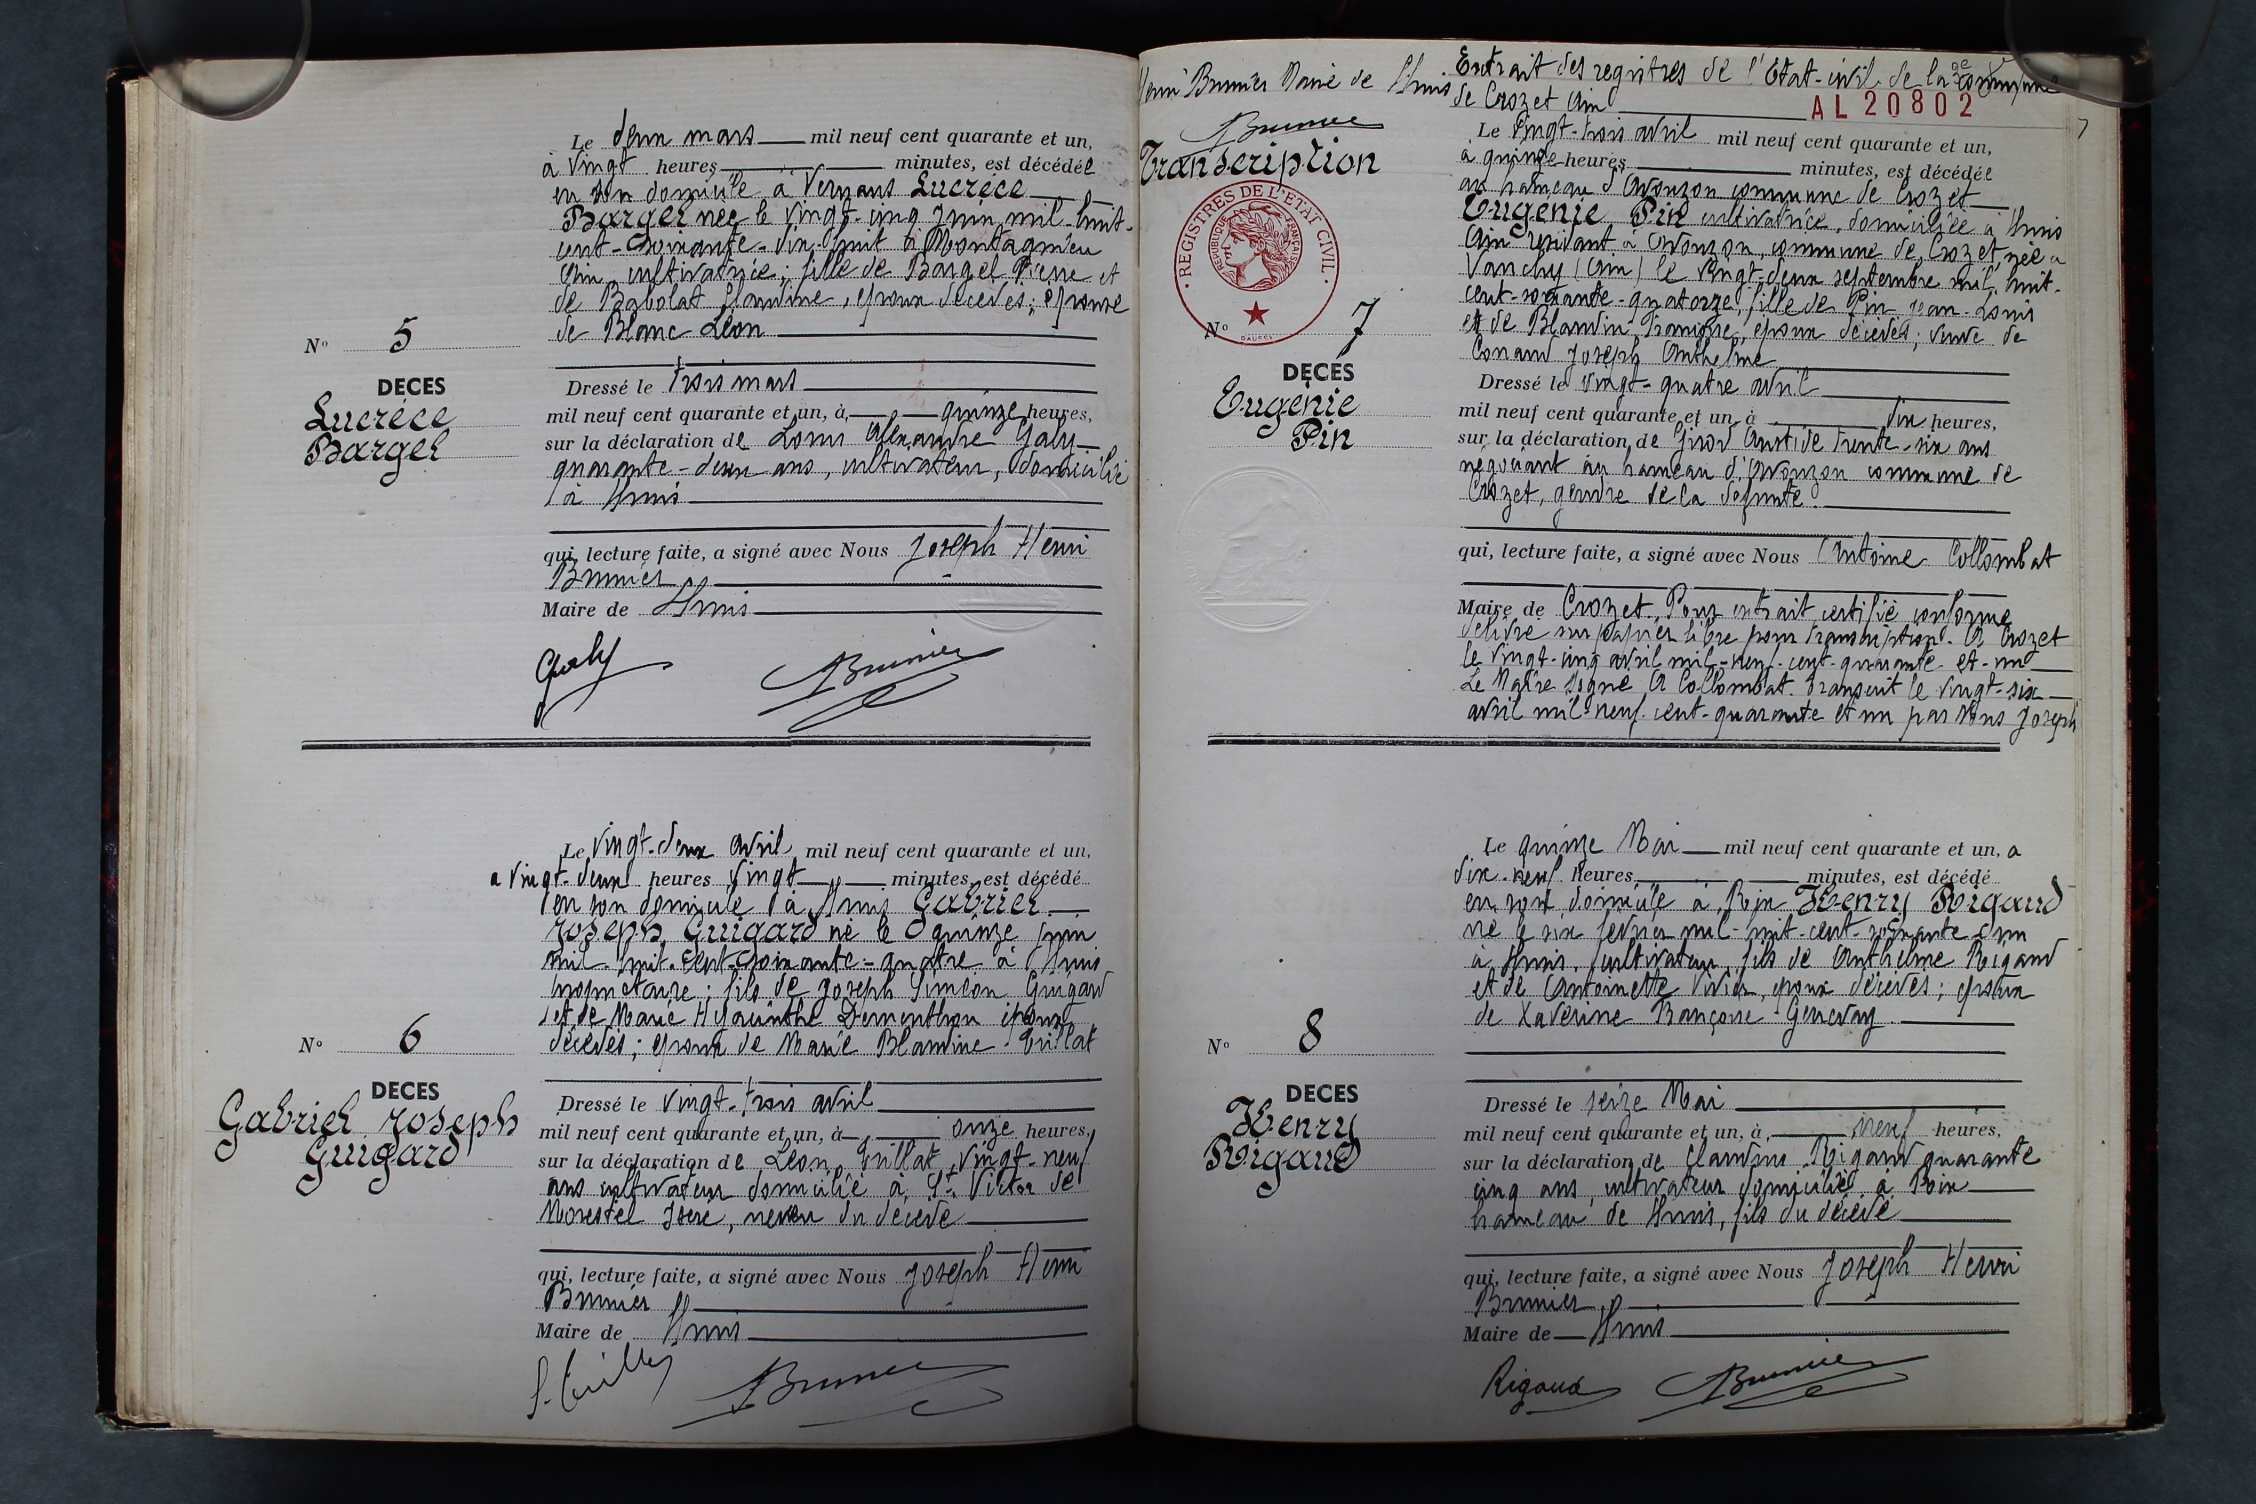 Le deux mars mil neuf cent quarante et un,
à vingt heures minutes, est décédée
en son domicile à Vernans Lucréce
Bargel née le vingt-cinq Juin mil-huit-
cent-soixante-dix-huit à Montagnieu
Ain, cultivatrice; fille de Bargel Pierre et
de Babolat Claudine, époux décédés; épouse
de Blanc Léon
N° 5
DECES
Lucréce
Bargel
Dressé le trois mars
mil neuf cent quarante et un, à quinze heures,
sur la déclaration de Louis Alexandre Galy
quarante-deux ans, cultivateur, domicilié
à Lhuis
qui, lecture faite, a signé avec Nous Joseph Henri
Brunier
Maire de Lhuis
Galy Brunier
Le vingt-deux avril mil neuf cent quarante et un,
a vingt-deux heures vingt minutes, est décédé
en son domicile à Lhuis Gabriel
Joseph Guigard né le quinze Juin
mil-huit-cent-soixante-quatre à Lhuis
propriétaire; fils de Joseph Siméon Guigard
et de Marie Hyacinthe Dementhon époux
décédés; époux de Marie Blandine Trillat
N° 6
DECES
Gabriel Joseph
Guigard
Dressé le vingt-trois avril
mil neuf cent quarante et un, à onze heures,
sur la déclaration de Léon Trillat, vingt-neuf
ans cultivateur domicilié à St Victor de
Morestel Isère, neveu du décédé
qui, lecture faite, a signé avec Nous Joseph Henri
Brunier
Maire de Lhuis
Brunier
Henri Brunier Maire de Lhuis
Brunier
Transcription
Extrait des registres de l'Etat-civil de la commune
de Crozet Ain
AL 20802
7
Le vingt-trois avril mil neuf cent quarante et un,
à quinze heures minutes, est décédée
au hameau d'Avouzon commune de Crozet
Eugénie Pin cultivatrice, domiciliée à Lhuis
Ain résidant à Avouzon, commune de Crozet, née à
Vanchy (Ain) le vingt-deux septembre mil huit-
cent-soixante-quatorze, fille de Pin Jean-Louis
et de Blandin Françoise, époux décédés; veuve de
Conand Joseph Anthelme
REGISTRES DE L'ETAT CIVIL
REPUBLIQUE FRANÇAISE
N° 7
DECES
Eugénie
Pin
Dressé le vingt-quatre avril
mil neuf cent quarante et un, à dix heures,
sur la déclaration de Girod Aristide trente-six ans
négociant au hameau d'Avouzon commune de
Crozet, gendre de la défunte.
qui, lecture faite, a signé avec Nous Antoine Collombat
Maire de Crozet. Pour extrait certifié conforme
délivré sur papier libre pour transcription. A Crozet
le vingt-cinq avril mil-neuf-cent-quarante-et-un
Le Maire signé A Collombat. Transcrit le vingt-six
avril mil-neuf-cent-quarante et un par Nous Joseph
Le quinze Mai mil neuf cent quarante et un, a
dix-neuf heures minutes, est décédé
en son domicile à Rix Henry Rigaud
né le six février mil-huit-cent-soixante & un
à Lhuis, cultivateur, fils de Anthelme Rigaud
et de Antoinette Vivier, époux décédés; époux
de Xavérine Françoise Genevay
N° 8
DECES
Henry
Rigaud
Dressé le seize Mai
mil neuf cent quarante et un, à neuf heures,
sur la déclaration de Claudius Rigaud quarante
cinq ans, cultivateur domicilié à Rix
hameau de Lhuis, fils du décédé
qui, lecture faite, a signé avec Nous Joseph Henri
Brunier
Maire de Lhuis
Rigaud Brunier